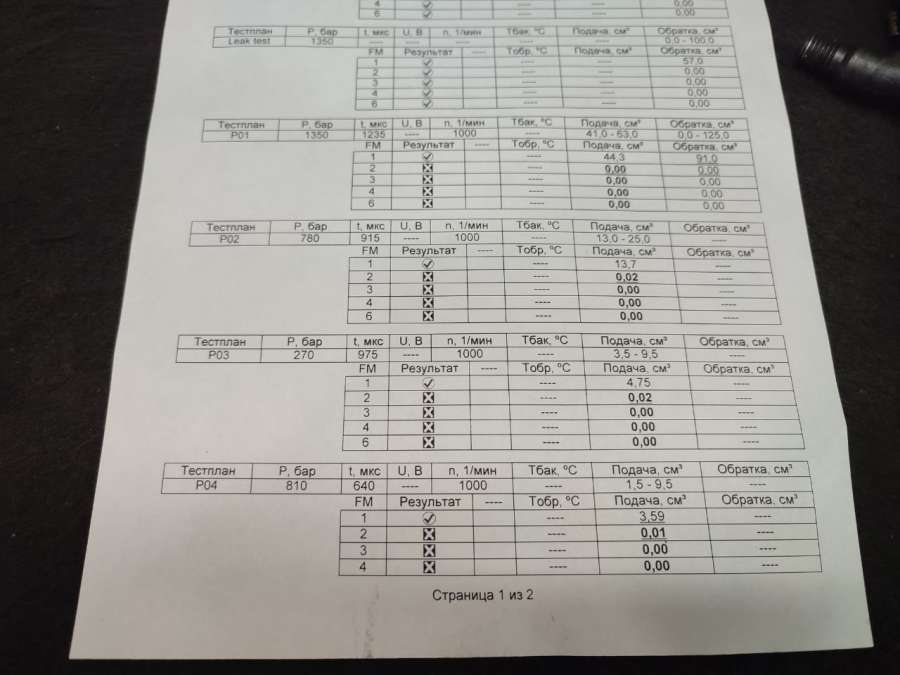 4 0,00
6 0,00
Тестплан P, бар t, мкс U, В n, 1/мин Тбак, ºС Подача, см³ Обратка, см³
Leak test 1350 ---- ---- ---- ---- ---- 0,0 - 100,0
FM Результат ---- Тобр, ºС Подача, см³ Обратка, см³
1 ---- ---- 57,0
2 ---- ---- 0,00
3 ---- ---- 0,00
4 ---- ---- 0,00
6 ---- ---- 0,00
Тестплан P, бар t, мкс U, В n, 1/мин Тбак, ºС Подача, см³ Обратка, см³
P01 1350 1235 ---- 1000 ---- 41,0 - 63,0 0,0 - 125,0
FM Результат ---- Тобр, ºС Подача, см³ Обратка, см³
1 ---- 44,3 91,0
2 ---- 0,00 0,00
3 ---- 0,00 0,00
4 ---- 0,00 0,00
6 ---- 0,00 0,00
Тестплан P, бар t, мкс U, В n, 1/мин Тбак, ºС Подача, см³ Обратка, см³
P02 780 915 ---- 1000 ---- 13,0 - 25,0 ----
FM Результат ---- Тобр, ºС Подача, см³ Обратка, см³
1 ---- 13,7 ----
2 ---- 0,02 ----
3 ---- 0,00 ----
4 ---- 0,00 ----
6 ---- 0,00 ----
Тестплан P, бар t, мкс U, В n, 1/мин Тбак, ºС Подача, см³ Обратка, см³
P03 270 975 ---- 1000 ---- 3,5 - 9,5 ----
FM Результат ---- Тобр, ºС Подача, см³ Обратка, см³
1 ---- 4,75 ----
2 ---- 0,02 ----
3 ---- 0,00 ----
4 ---- 0,00 ----
6 ---- 0,00 ----
Тестплан P, бар t, мкс U, В n, 1/мин Тбак, ºС Подача, см³ Обратка, см³
P04 810 640 ---- 1000 ---- 1,5 - 9,5 ----
FM Результат ---- Тобр, ºС Подача, см³ Обратка, см³
1 ---- 3,59 ----
2 ---- 0,01 ----
3 ---- 0,00 ----
4 ---- 0,00 ----
Страница 1 из 2